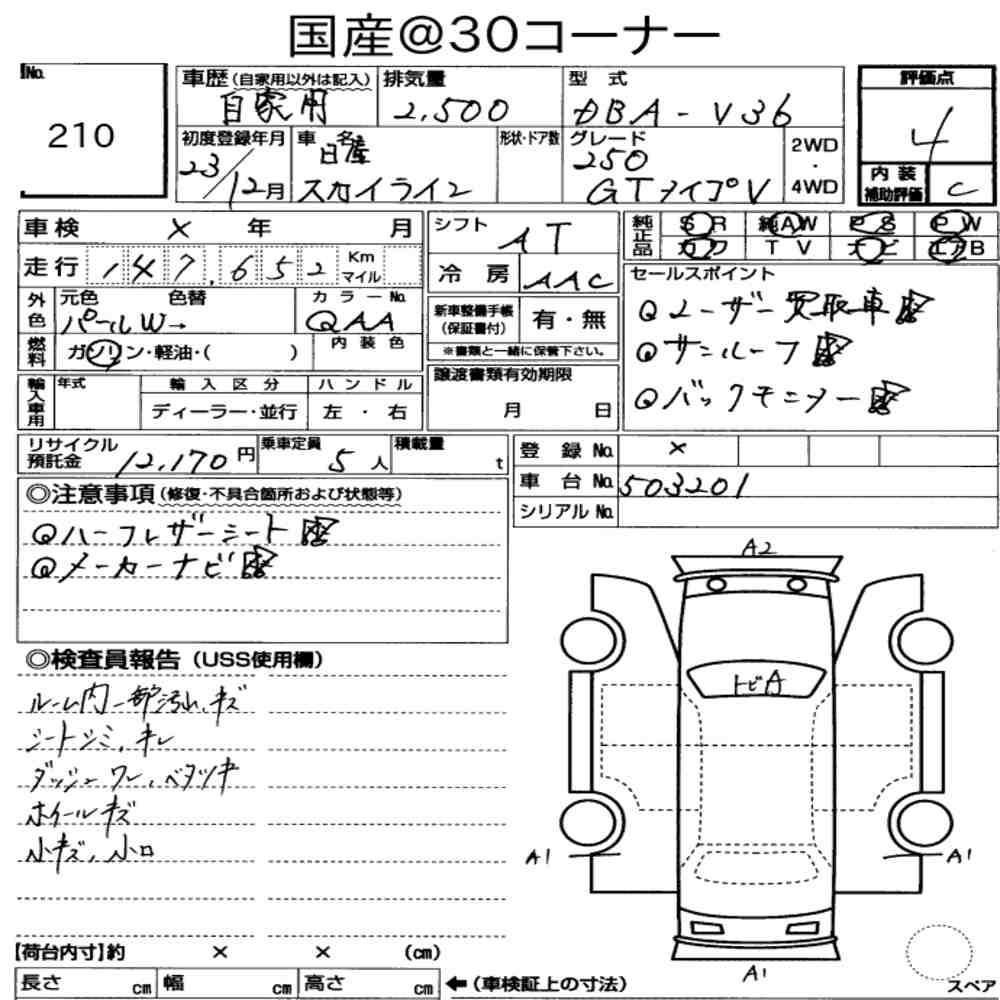 国産@30コーナー
No.
210
車歴(自家用以外は記入)
自家用
排気量
2,500
型式
DBA-V36
評価点
4
内装補助評価
C
初度登録年月
23/12月
車名
日産
スカイライン
形状・ドア数
グレード
250
GTタイプV
2WD
・
4WD
車検 × 年 月
走行 147,652 Km マイル
シフト
AT
冷房
AAC
純正品
SR 純AW PS PW
カワ TV ナビ エアB
外色
元色 色替
パールW→
カラーNo.
QAA
燃料
ガソリン・軽油・( )
内装色
新車整備手帳(保証書付)
有・無
※書類と一緒に保管下さい。
セールスポイント
◎ユーザー買取車
◎サンルーフ
◎バックモニター
輸入車用
年式
輸入区分
ディーラー・並行
ハンドル
左・右
譲渡書類有効期限
月 日
リサイクル預託金 12,170円
乗車定員 5人
積載量 t
登録No. ×
車台No. 503201
シリアルNo.
◎注意事項(修復・不具合箇所および状態等)
◎ハーフレザーシート
◎メーカーナビ
◎検査員報告(USS使用欄)
ルーム内一部汚れ、キズ
シートシミ、キレ
ダッシュワレ、ベタツキ
ホイールキズ
小キズ、小凹
A2
トビA
A1
A1
A1
スペア
【荷台内寸】約 × × (cm)
長さ cm 幅 cm 高さ cm ←(車検証上の寸法)